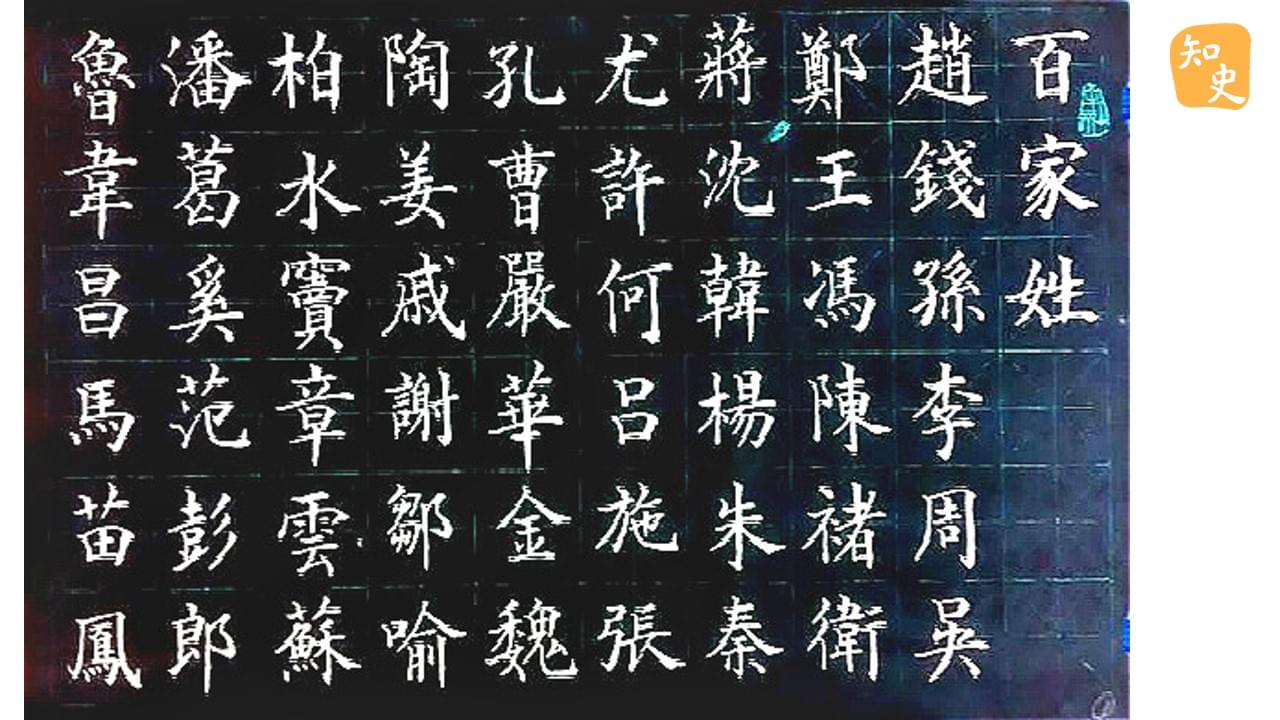 百家姓
趙錢孫李周吳
鄭王馮陳褚衛
蔣沈韓楊朱秦
尤許何呂施張
孔曹嚴華金魏
陶姜戚謝鄒喻
柏水竇章雲蘇
潘葛奚范彭郎
魯韋昌馬苗鳳
知史